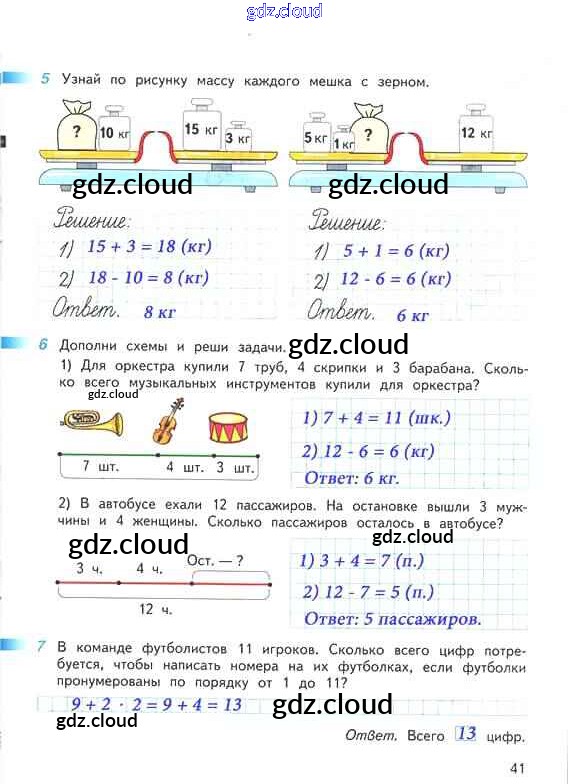 gdz.cloud
5 Узнай по рисунку массу каждого мешка с зерном.
? 10 кг 15 кг 3 кг 5 кг 1 кг ? 12 кг
gdz.cloud gdz.cloud
Решение:
1) 15 + 3 = 18 (кг)
2) 18 - 10 = 8 (кг)
Ответ. 8 кг
Решение:
1) 5 + 1 = 6 (кг)
2) 12 - 6 = 6 (кг)
Ответ. 6 кг
6 Дополни схемы и реши задачи.
gdz.cloud
1) Для оркестра купили 7 труб, 4 скрипки и 3 барабана. Сколь-
ко всего музыкальных инструментов купили для оркестра?
gdz.cloud
7 шт. 4 шт. 3 шт.
1) 7 + 4 = 11 (шк.)
2) 12 - 6 = 6 (кг)
Ответ: 6 кг.
2) В автобусе ехали 12 пассажиров. На остановке вышли 3 муж-
чины и 4 женщины. Сколько пассажиров осталось в автобусе?
gdz.cloud
gdz.cloud
3 ч. 4 ч. Ост. — ?
12 ч.
1) 3 + 4 = 7 (п.)
2) 12 - 7 = 5 (п.)
Ответ: 5 пассажиров.
7 В команде футболистов 11 игроков. Сколько всего цифр потре-
буется, чтобы написать номера на их футболках, если футболки
пронумерованы по порядку от 1 до 11?
9 + 2 · 2 = 9 + 4 = 13
gdz.cloud
gdz.cloud
Ответ. Всего 13 цифр.
41